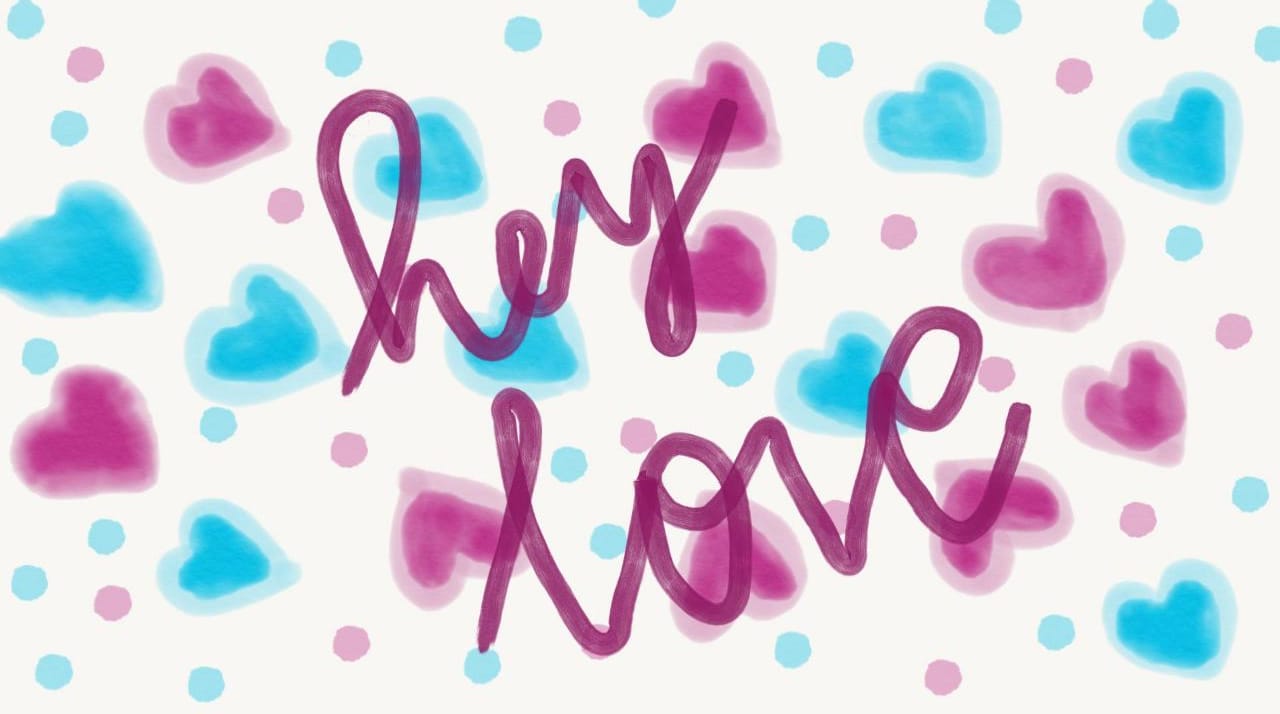 hey
love